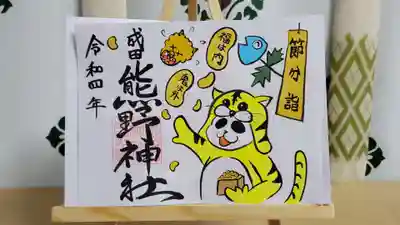 節分詣
福は内
鬼は外
成田熊野神社
令和四年